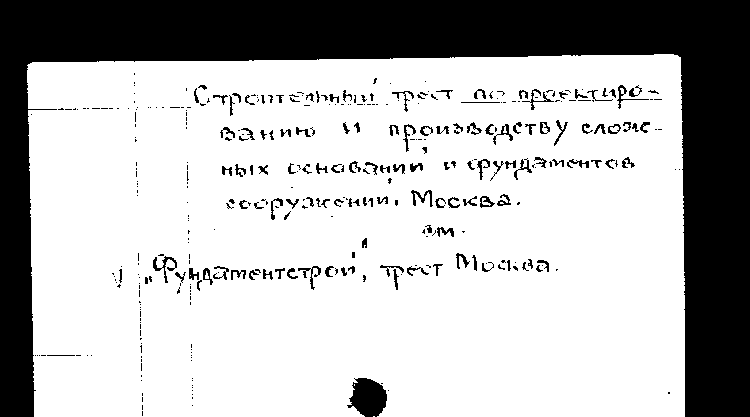 Строительный трест по проектиро-
ванию и производству слож-
ных оснований и фундаментов
сооружений, Москва.
см.
√ „Фундаментстрой", трест Москва.